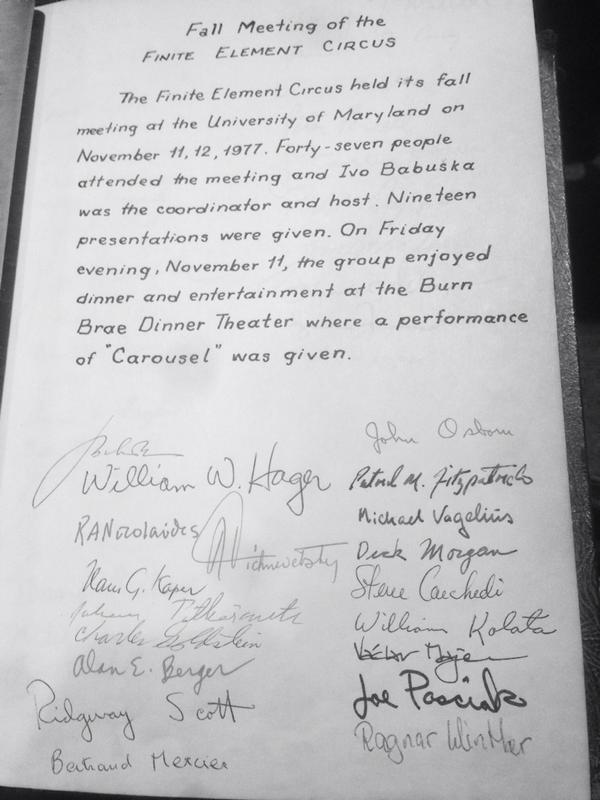 Fall Meeting of the
FINITE ELEMENT CIRCUS
The Finite Element Circus held its fall
meeting at the University of Maryland on
November 11, 12, 1977. Forty-seven people
attended the meeting and Ivo Babuska
was the coordinator and host. Nineteen
presentations were given. On Friday
evening, November 11, the group enjoyed
dinner and entertainment at the Burn
Brae Dinner Theater where a performance
of "Carousel" was given.
William W. Hager
RANicolaides
Hans G. Kaper
Charles Goldstein
Alan E. Berger
Ridgway Scott
Bertrand Mercier
John Osborn
Patrick M. Fitzpatrick
Michael Vogelius
Dick Morgan
Steve
William Kolata
Joe Pasciak
Ragnar Winther